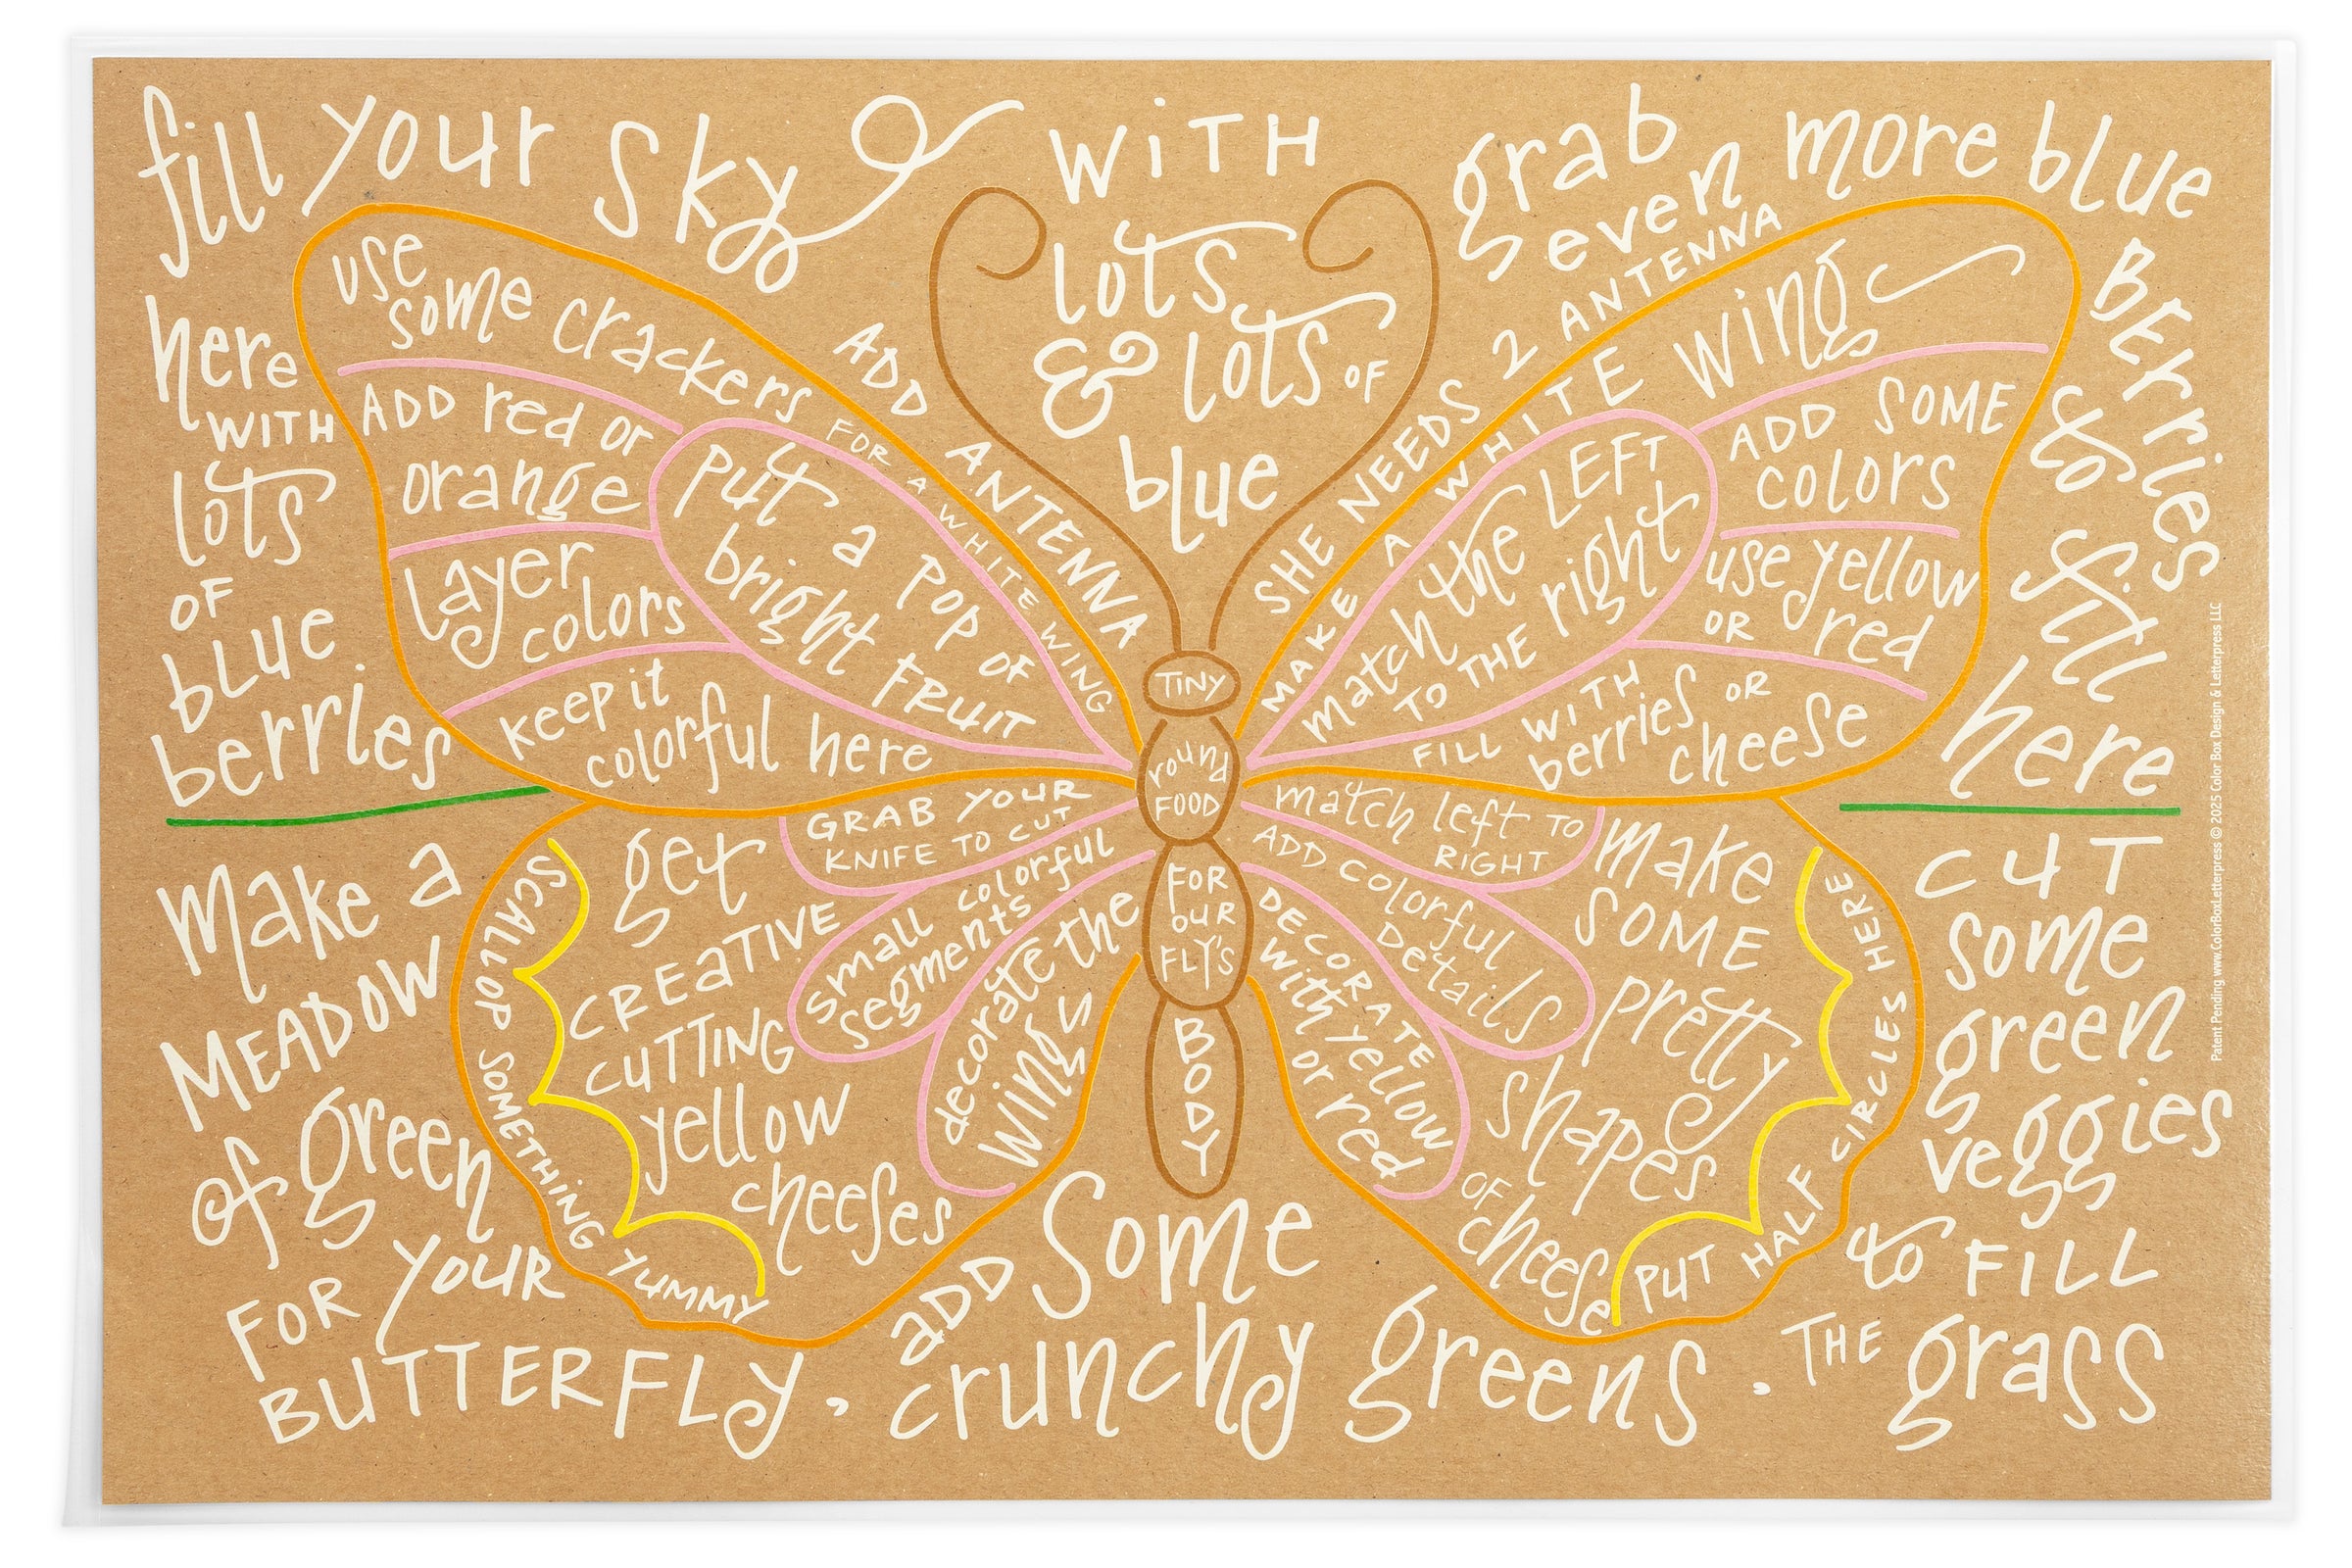 fill your sky
with
lots
& lots of
blue
grab
even
more blue
berries
to fill
here
here
with
lots
of
blue
berries
add antenna
she needs 2 antenna
use
some crackers
for a white wing
add red or
orange
layer
colors
keep it
colorful here
put a pop of
bright fruit
make a white wing
match the left
to the right
add some
colors
use yellow
or red
fill with
berries or
cheese
tiny
round
food
for
our
fly's
body
grab your
knife to cut
small colorful
segments
decorate the
wings
get
creative
cutting
yellow
cheeses
scallop something yummy
match left to
right
add colorful
details
decorate
with yellow
or red
make
some
pretty
shapes
of
cheese
put half circles here
make a
meadow
of green
for your
butterfly,
add some
crunchy greens.
cut
some
green
veggies
to fill
the grass
Patent Pending www.ColorBoxLetterpress © 2025 Color Box Design & Letterpress LLC